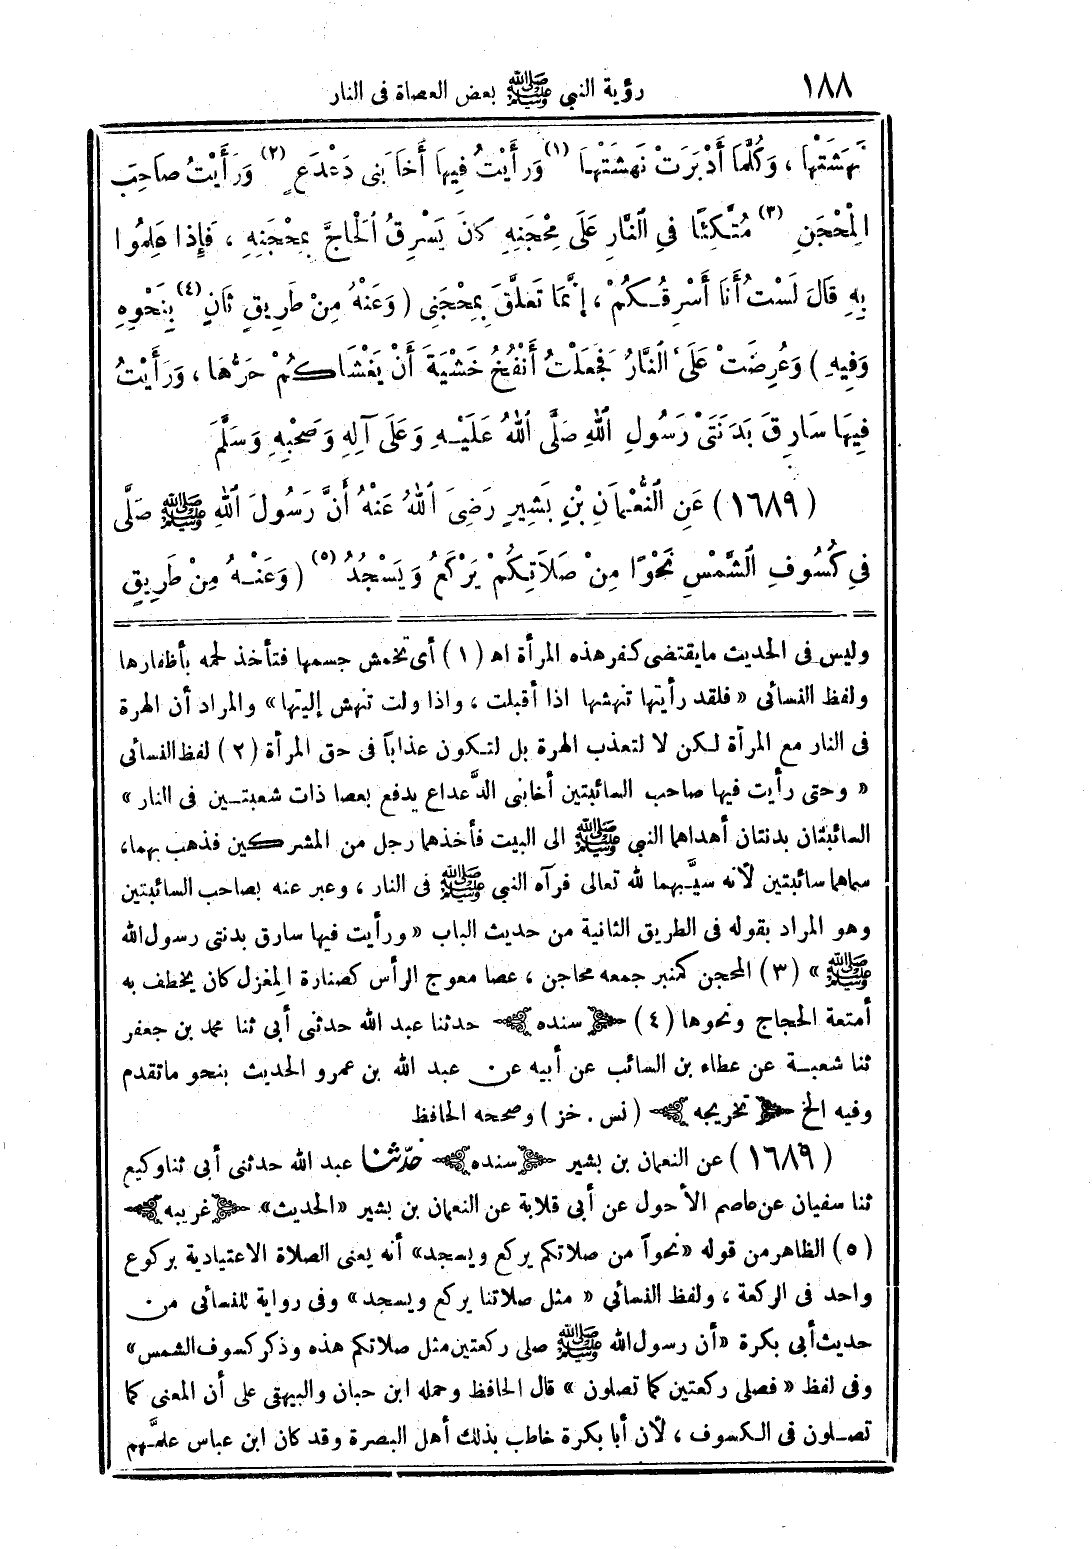 ١٨٨ رؤية النبي ﷺ بعض العصاة في النار
نَهَشَتْهَا ، وَكُلَّمَا أَدْبَرَتْ نَهَشَتْهَا (١) وَرَأَيْتُ فِيهَا أَخَا بَنِي دَعْدَعٍ (٢) وَرَأَيْتُ صَاحِبَ
الْمِحْجَنِ (٣) مُتَّكِئًا فِي النَّارِ عَلَى مِحْجَنِهِ كَانَ يَسْرِقُ الْحَاجَّ بِمِحْجَنِهِ ، فَإِذَا عَلِمُوا
بِهِ قَالَ لَسْتُ أَنَا أَسْرِقُكُمْ ، إِنَّمَا تَعَلَّقَ بِمِحْجَنِي ( وَعَنْهُ مِنْ طَرِيقٍ ثَانٍ (٤) بِنَحْوِهِ
وَفِيهِ ) وَعُرِضَتْ عَلَىَّ النَّارُ فَجَعَلْتُ أَنْفُخُ خَشْيَةَ أَنْ يَغْشَاكُمْ حَرُّهَا ، وَرَأَيْتُ
فِيهَا سَارِقَ بَدَنَتَيْ رَسُولِ اللهِ صَلَّى اللهُ عَلَيْهِ وَعَلَى آلِهِ وَصَحْبِهِ وَسَلَّمَ
( ١٦٨٩ ) عَنِ النُّعْمَانِ بْنِ بَشِيرٍ رَضِيَ اللهُ عَنْهُ أَنَّ رَسُولَ اللهِ ﷺ صَلَّى
فِي كُسُوفِ الشَّمْسِ نَحْوًا مِنْ صَلَاتِكُمْ يَرْكَعُ وَيَسْجُدُ (٥) ( وَعَنْهُ مِنْ طَرِيقٍ
وليس في الحديث ما يقتضى كفر هذه المرأة اه (١) أى تخمش جسمها فتأخذ لحمه بأظفارها
ولفظ النسائى « فلقد رأيتها تنهشها اذا أقبلت ، واذا ولت تنهش إليتها » والمراد أن الهرة
فى النار مع المرأة لكن لا لتعذب الهرة بل لتكون عذاباً فى حق المرأة (٢) لفظ النسائى
« وحتى رأيت فيها صاحب السائبتين أخابنى الدَّعداع يدفع بعصا ذات شعبتين فى النار »
السائبتان بدنتان أهداهما النبي ﷺ الى البيت فأخذهما رجل من المشركين فذهب بهما،
سماهما سائبتين لأنه سيَّبهما لله تعالى فرآه النبي ﷺ فى النار ، وعبر عنه بصاحب السائبتين
وهو المراد بقوله فى الطريق الثانية من حديث الباب « ورأيت فيها سارق بدنتى رسول الله
ﷺ » (٣) المحجن كمنبر جمعه محاجن ، عصا معوج الرأس كصنارة المِغزل كان يخطف به
أمتعة الحجاج ونحوها (٤) سنده حدثنا عبد الله حدثنى أبي ثنا محمد بن جعفر
ثنا شعبة عن عطاء بن السائب عن أبيه عن عبد الله بن عمرو الحديث بنحو ماتقدم
وفيه الخ تخريجه ( نس . خز ) وصححه الحافظ
( ١٦٨٩ ) عن النعمان بن بشير سنده حدّثنا عبد الله حدثنى أبى ثنا وكيع
ثنا سفيان عن عاصم الأحول عن أبى قلابة عن النعمان بن بشير «الحديث» غريبه
(٥) الظاهر من قوله «نحواً من صلاتكم يركع ويسجد» أنه يعنى الصلاة الاعتيادية بركوع
واحد فى الركعة ، ولفظ النسائي « مثل صلاتنا يركع ويسجد » وفى رواية للنسائى من
حديث أبى بكرة «أن رسول الله ﷺ صلى ركعتين مثل صلاتكم هذه وذكر كسوف الشمس»
وفى لفظ « فصلى ركعتين كما تصلون » قال الحافظ وحمله ابن حبان والبيهقى على أن المعنى كما
تصلون فى الكسوف ، لأن أبا بكرة خاطب بذلك أهل البصرة وقد كان ابن عباس علمَّهم